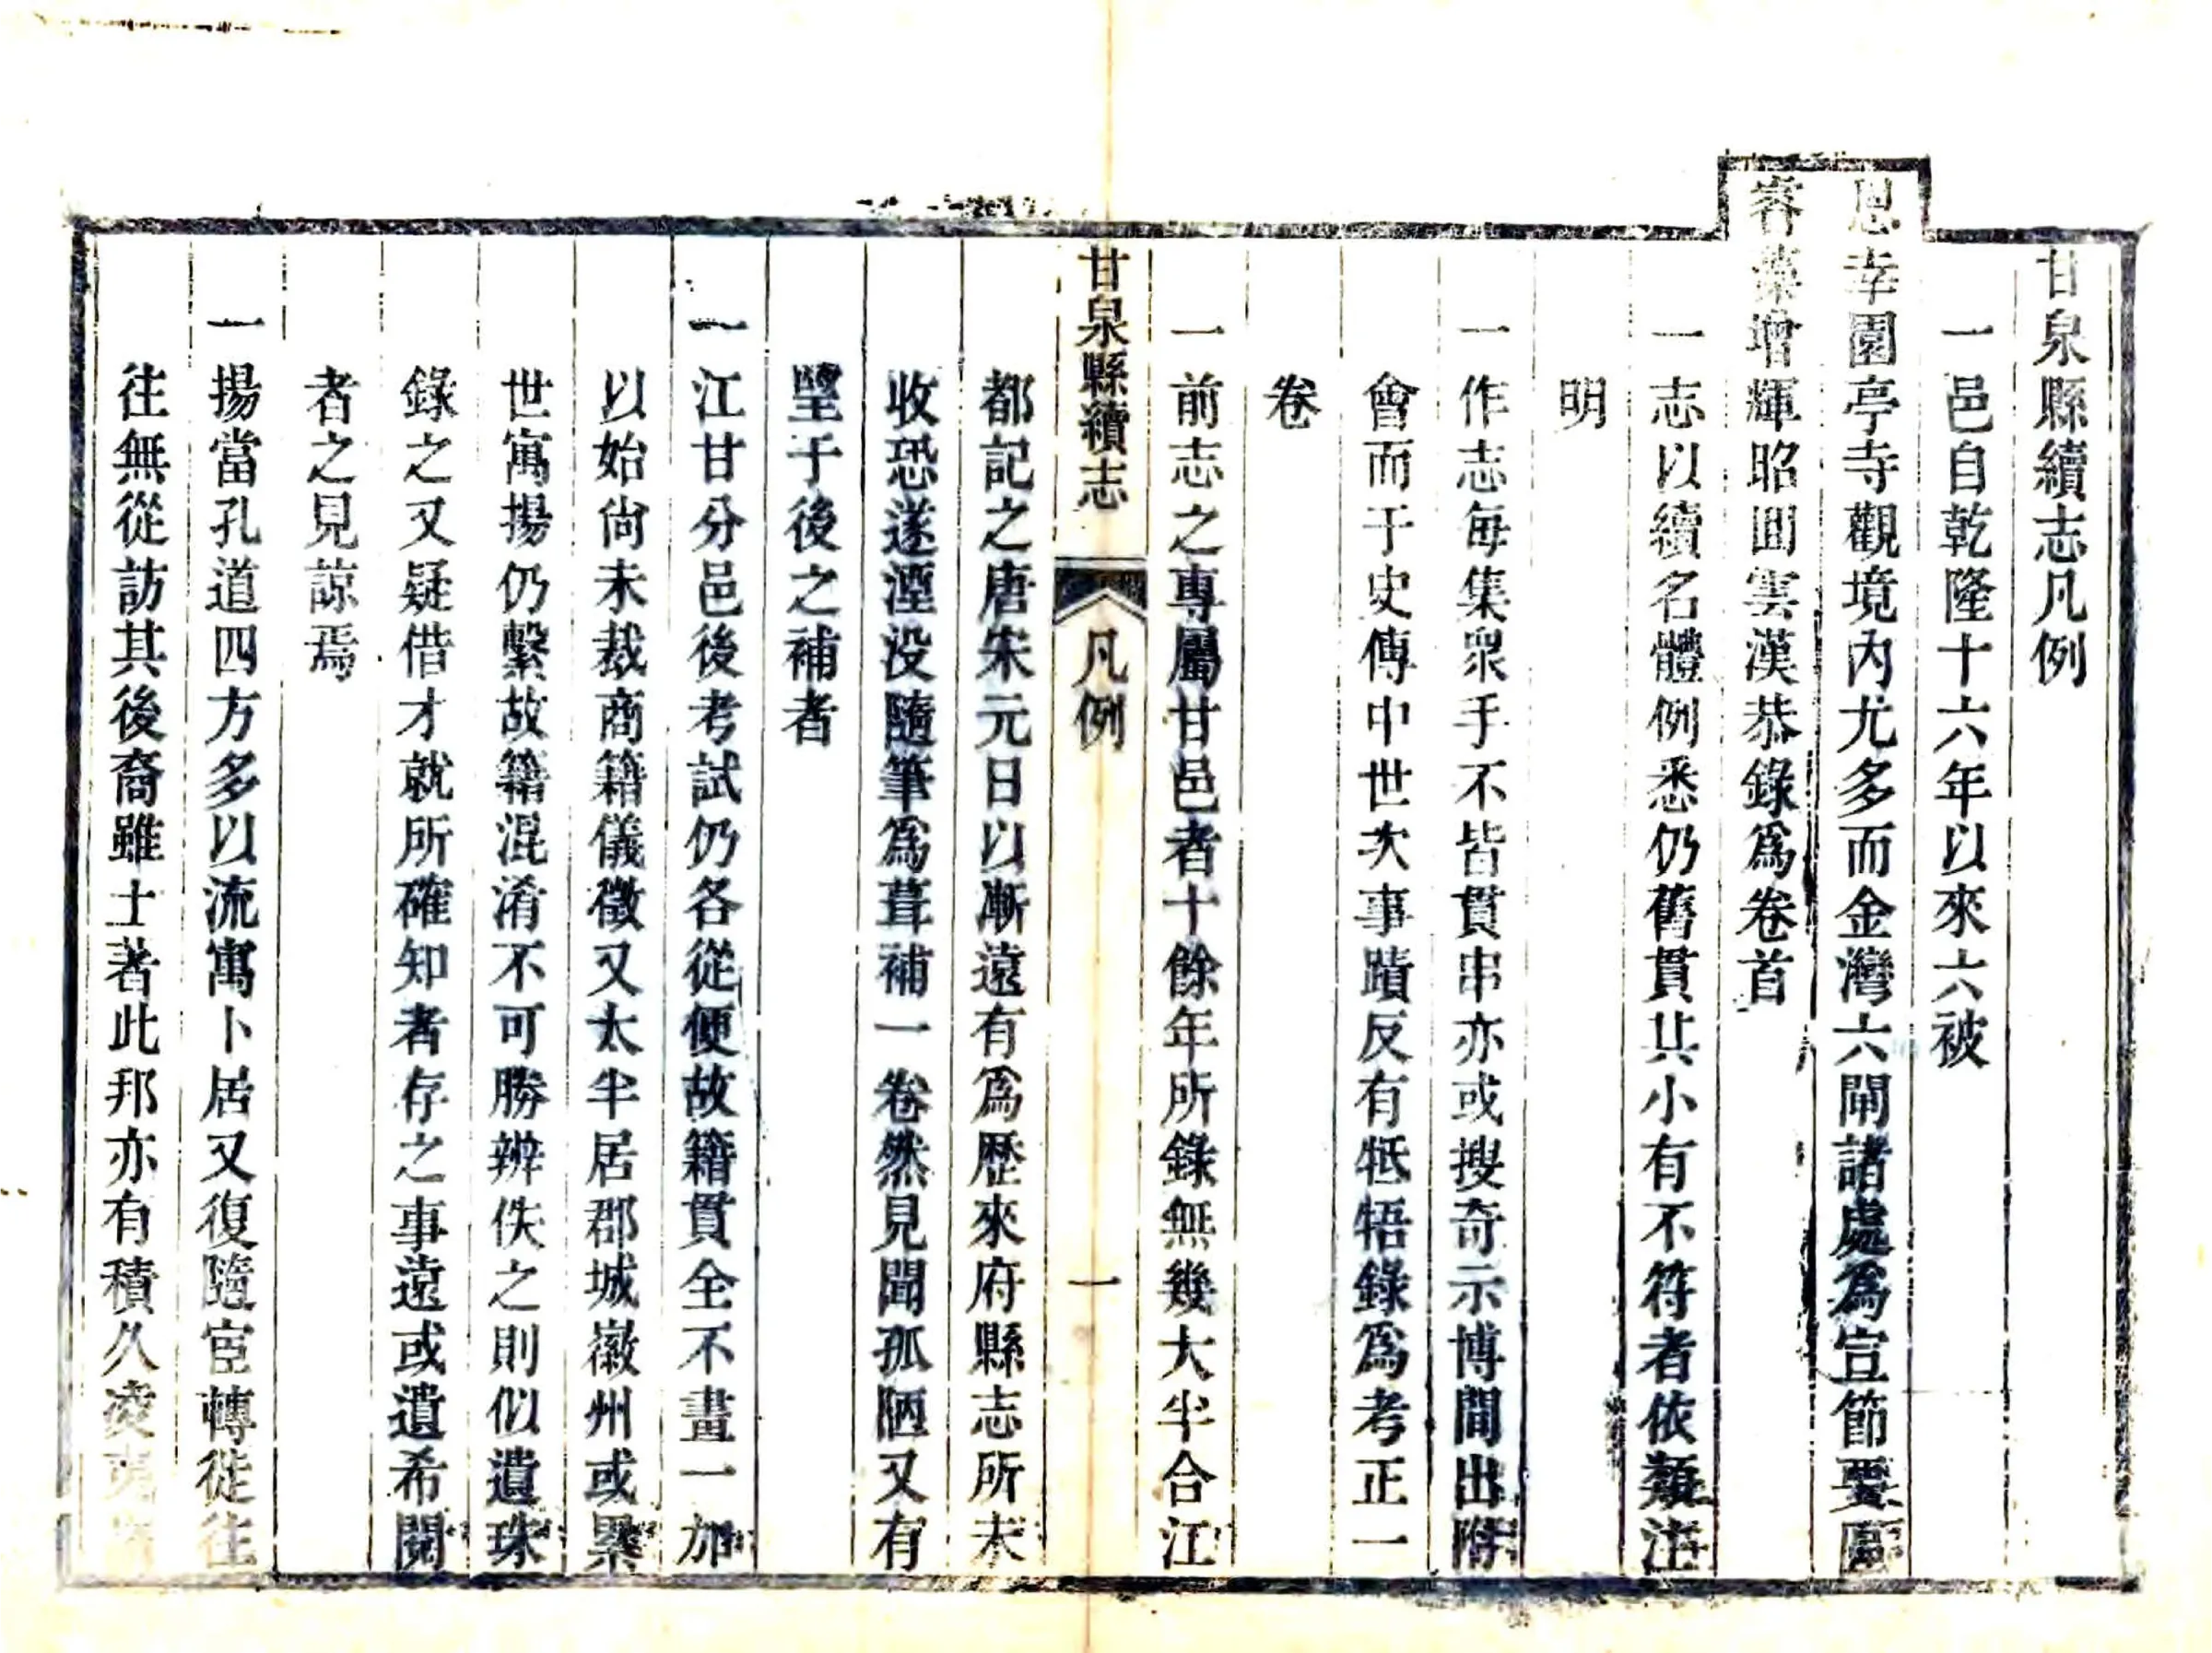 甘泉縣續志凡例
一邑自乾隆十六年以來六被
恩幸園亭寺觀境內尤多而金灣六閘諸處爲宣節要區
睿藻增輝昭囬雲漢恭錄爲卷首
一志以續名體例悉仍舊貫其小有不符者依類注
明
一作志每集衆手不皆貫串亦或搜奇示博間出附
會而于史傳中世次事蹟反有牴牾錄爲考正一
卷
一前志之專屬甘邑者十餘年所錄無幾大半合江
甘泉縣續志 凡例 一
都記之唐宋元日以漸遠有爲歷來府縣志所未
收恐遂湮没隨筆爲葺補一卷然見聞孤陋又有
望于後之補者
一江甘分邑後考試仍各從便故籍貫全不畫一加
以始尙未裁商籍儀徵又太半居郡城徽州或累
世寓揚仍繫故籍混淆不可勝辨佚之則似遺珠
錄之又疑借才就所確知者存之事遠或遺希閱
者之見諒焉
一揚當孔道四方多以流寓卜居又復隨宦轉徙往
往無從訪其後裔雖士著此邦亦有積久凌夷